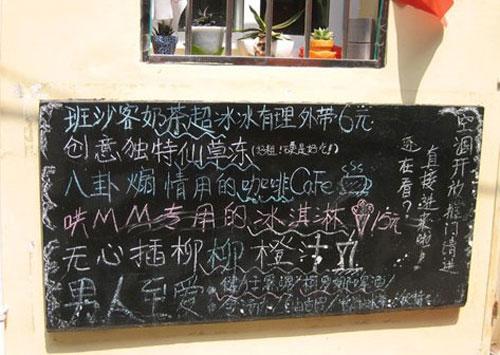 班沙客奶茶超冰冰有理外带6元
创意独特仙草冻
八卦煽情用的咖啡CaFe
哄MM专用的冰淇淋15元
无心插柳柳橙汁
男人至爱
空调开放推门请进
直接进来啦!
还在看?